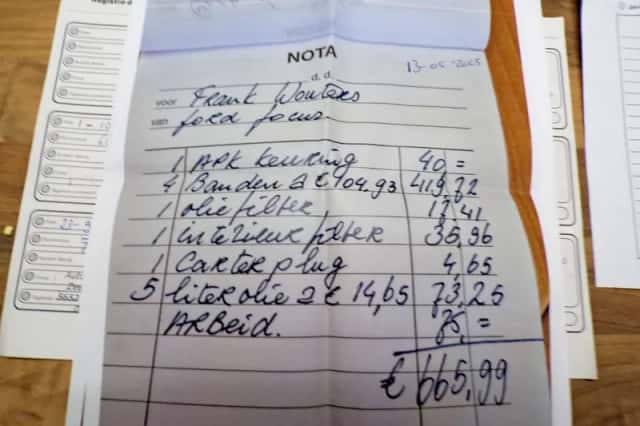 NOTA
13-05-2025
d.d.
voor Frank Wouters
van ford focus.
1 APK keuring 40 =
4 Banden a € 104.93 419,72
1 oliefilter 17,41
1 interieur filter 35,96
1 Carterplug 4,65
5 liter olie a € 14,65 73,25
ARBeid. 75, =
€ 665,99